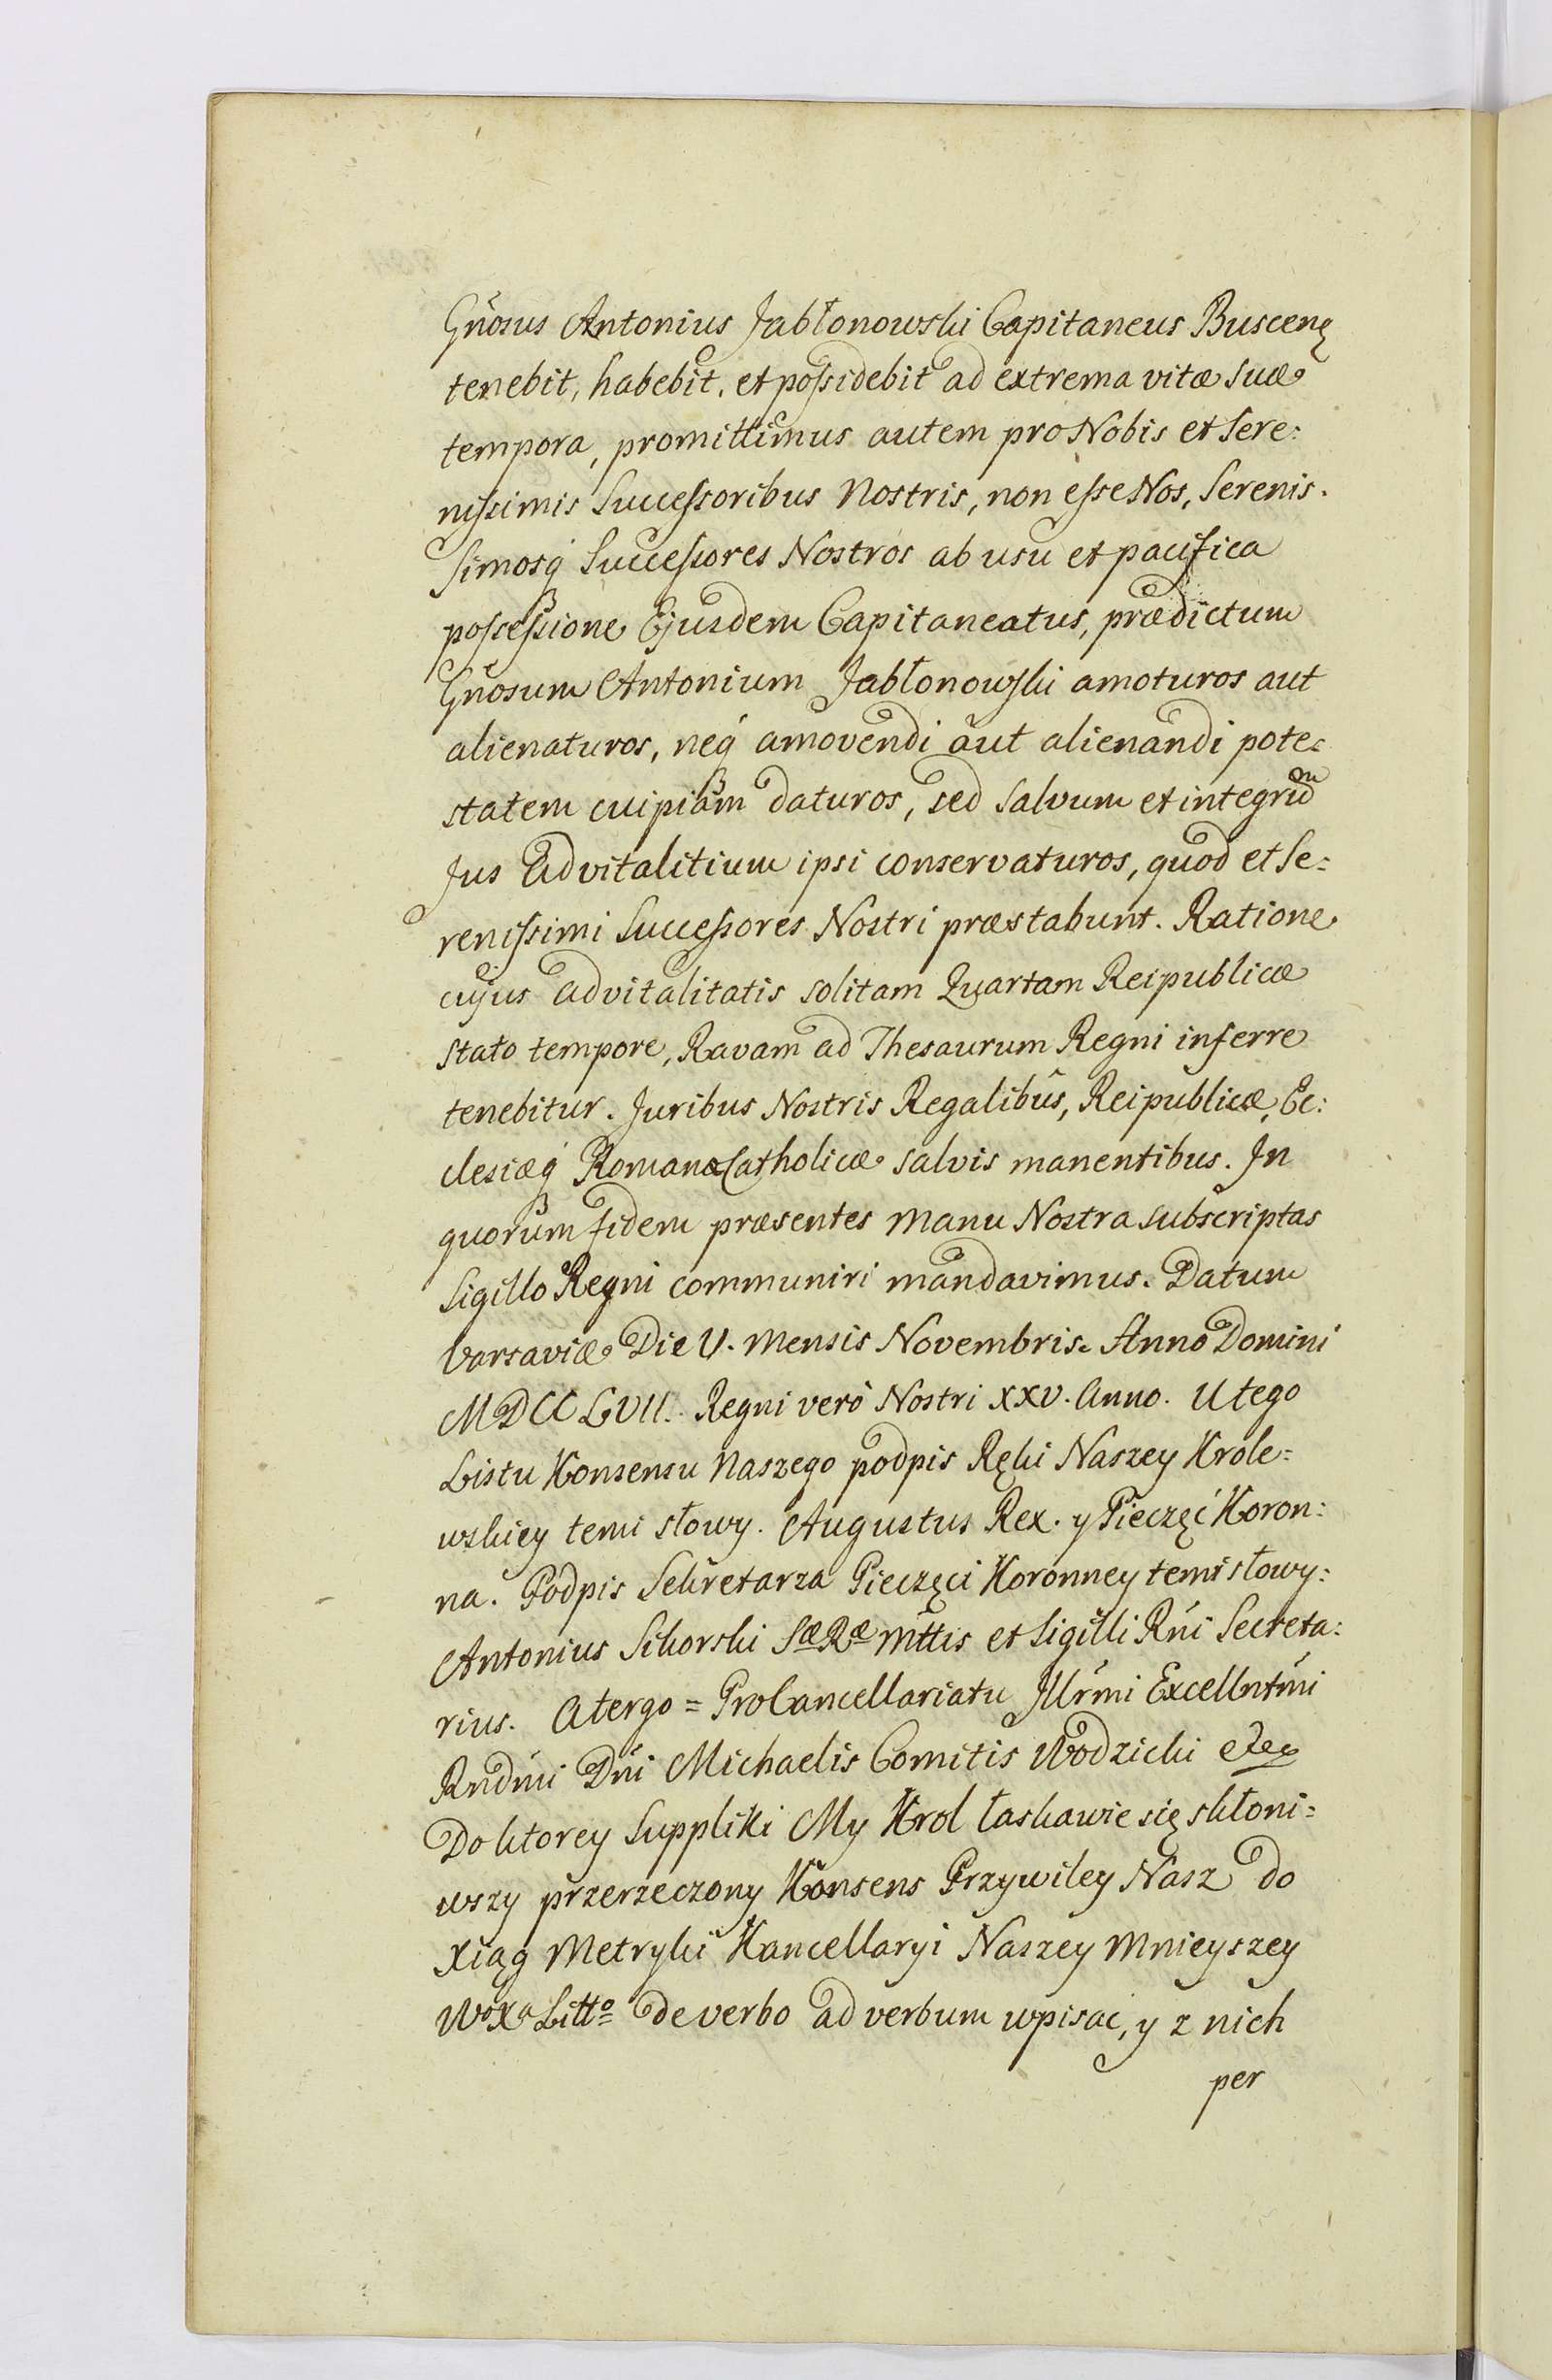 Gnosus Antonius Jabłonowski Capitaneus Buscenę
tenebit, habebit, et possidebit ad extrema vitæ suæ
tempora, promittimus autem pro Nobis et Sere:
nissimis Successoribus Nostris, non esse Nos, Serenis.
simosq́ Successores Nostros ab usu et pacifica
possessione Ejusdem Capitaneatus, prædictum
Gnosum Antonium Jabłonowski amoturos aut
alienaturos, neq́ amovendi aut alienandi pote:
statem cuipiam daturos, sed salvum et integrum
Jus Advitalitium ipsi conservaturos, quod et Se:
renissimi Successores Nostri præstabunt. Ratione
cujus advitalitatis solitam Quartam Reipublicæ
stato tempore, Ravam ad Thesaurum Regni inferre
tenebitur. Juribus Nostris Regalibus, Reipublicæ, Ec:
clesiæq́ Romanæ Catholicæ salvis manentibus. In
quorum fidem præsentes Manu Nostra subscriptas
Sigillo Regni communiri mandavimus. Datum
Varsaviæ Die V. Mensis Novembris. Anno Domini
MDCCLVII. Regni verò Nostri XXV. Anno. U tego
Listu Konsensu Naszego podpis Ręki Naszey Krole=
wskiey temi słowy. Augustus Rex. y Pieczęć Koron:
na. Podpis Sekretarza Pieczęci Koronney temi słowy:
Antonius Sikorski Sæ Ræ Mttis et Sigilli Rni Secreta:
rius. A tergo = ProCancellariatu Illrmi Excellntmi
Rndmi Dni Michaelis Comitis Wodzicki
Do ktorey Suppliki My Krol łaskawie się skłoni=
wszy przerzeczony Konsens Przywiley Nasz do
Xiąg Metryki Kancellaryi Naszey Mnieyszey
WoXa Litto de verbo ad verbum wpisać, y z nich
per